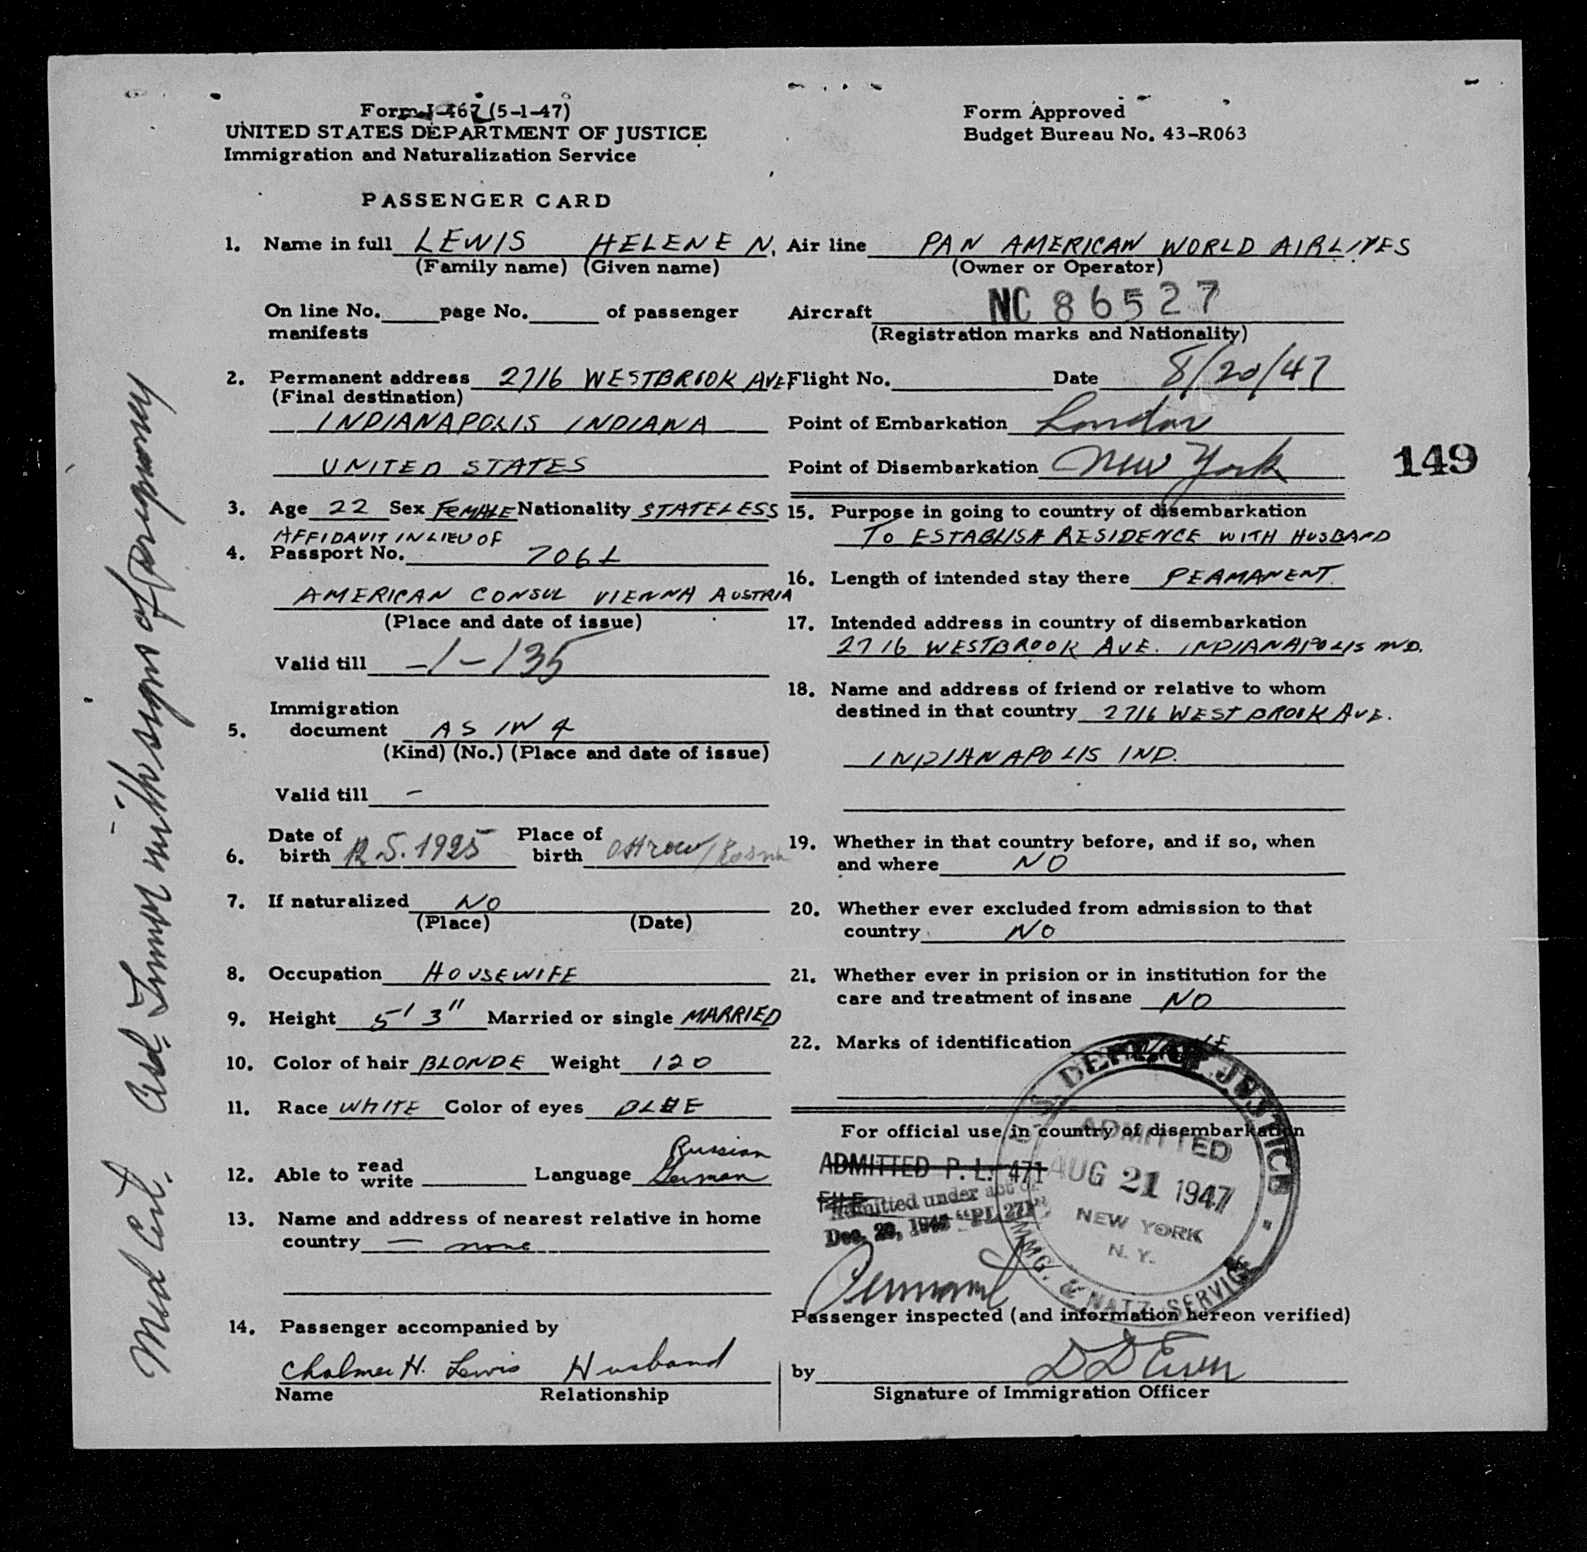 Form I-467 (5-1-47)
UNITED STATES DEPARTMENT OF JUSTICE
Immigration and Naturalization Service
Form Approved
Budget Bureau No. 43-R063
PASSENGER CARD
1. Name in full LEWIS HELENE N.
(Family name) (Given name)
On line No. page No. of passenger
manifests
2. Permanent address 2716 WESTBROOK AVE
(Final destination)
INDIANAPOLIS INDIANA
UNITED STATES
3. Age 22 Sex FEMALE Nationality STATELESS
AFFIDAVIT IN LIEU OF
4. Passport No. 7061
AMERICAN CONSUL VIENNA AUSTRIA
(Place and date of issue)
Valid till -1-135
Immigration
5. document AS IN 4
(Kind) (No.) (Place and date of issue)
Valid till -
Date of Place of
6. birth 12.5.1925 birth
7. If naturalized NO
(Place) (Date)
8. Occupation HOUSEWIFE
9. Height 5' 3" Married or single MARRIED
10. Color of hair BLONDE Weight 120
11. Race WHITE Color of eyes BLUE
Russian
12. Able to read write Language German
13. Name and address of nearest relative in home
country - none
14. Passenger accompanied by
Chalmer H. Lewis Husband
Name Relationship
Air line PAN AMERICAN WORLD AIRLINES
(Owner or Operator)
Aircraft NC 86527
(Registration marks and Nationality)
Flight No. Date 8/20/47
Point of Embarkation London
Point of Disembarkation New York
149
15. Purpose in going to country of disembarkation
TO ESTABLISH RESIDENCE WITH HUSBAND
16. Length of intended stay there PERMANENT
17. Intended address in country of disembarkation
2716 WESTBROOK AVE. INDIANAPOLIS IND.
18. Name and address of friend or relative to whom
destined in that country 2716 WESTBROOK AVE.
INDIANAPOLIS IND.
19. Whether in that country before, and if so, when
and where NO
20. Whether ever excluded from admission to that
country NO
21. Whether ever in prision or in institution for the
care and treatment of insane NO
22. Marks of identification
For official use in country of disembarkation
ADMITTED P. L. 471
FILE
Admitted under act of
Dec. 28, 1945 "PL 271"
Permanent
U. S. DEPT. OF JUSTICE
ADMITTED
AUG 21 1947
NEW YORK
N. Y.
IMMG. & NATZ. SERVICE
Passenger inspected (and information hereon verified)
by
Signature of Immigration Officer
Med Cert. Abd. Tumor with signs of pregnancy